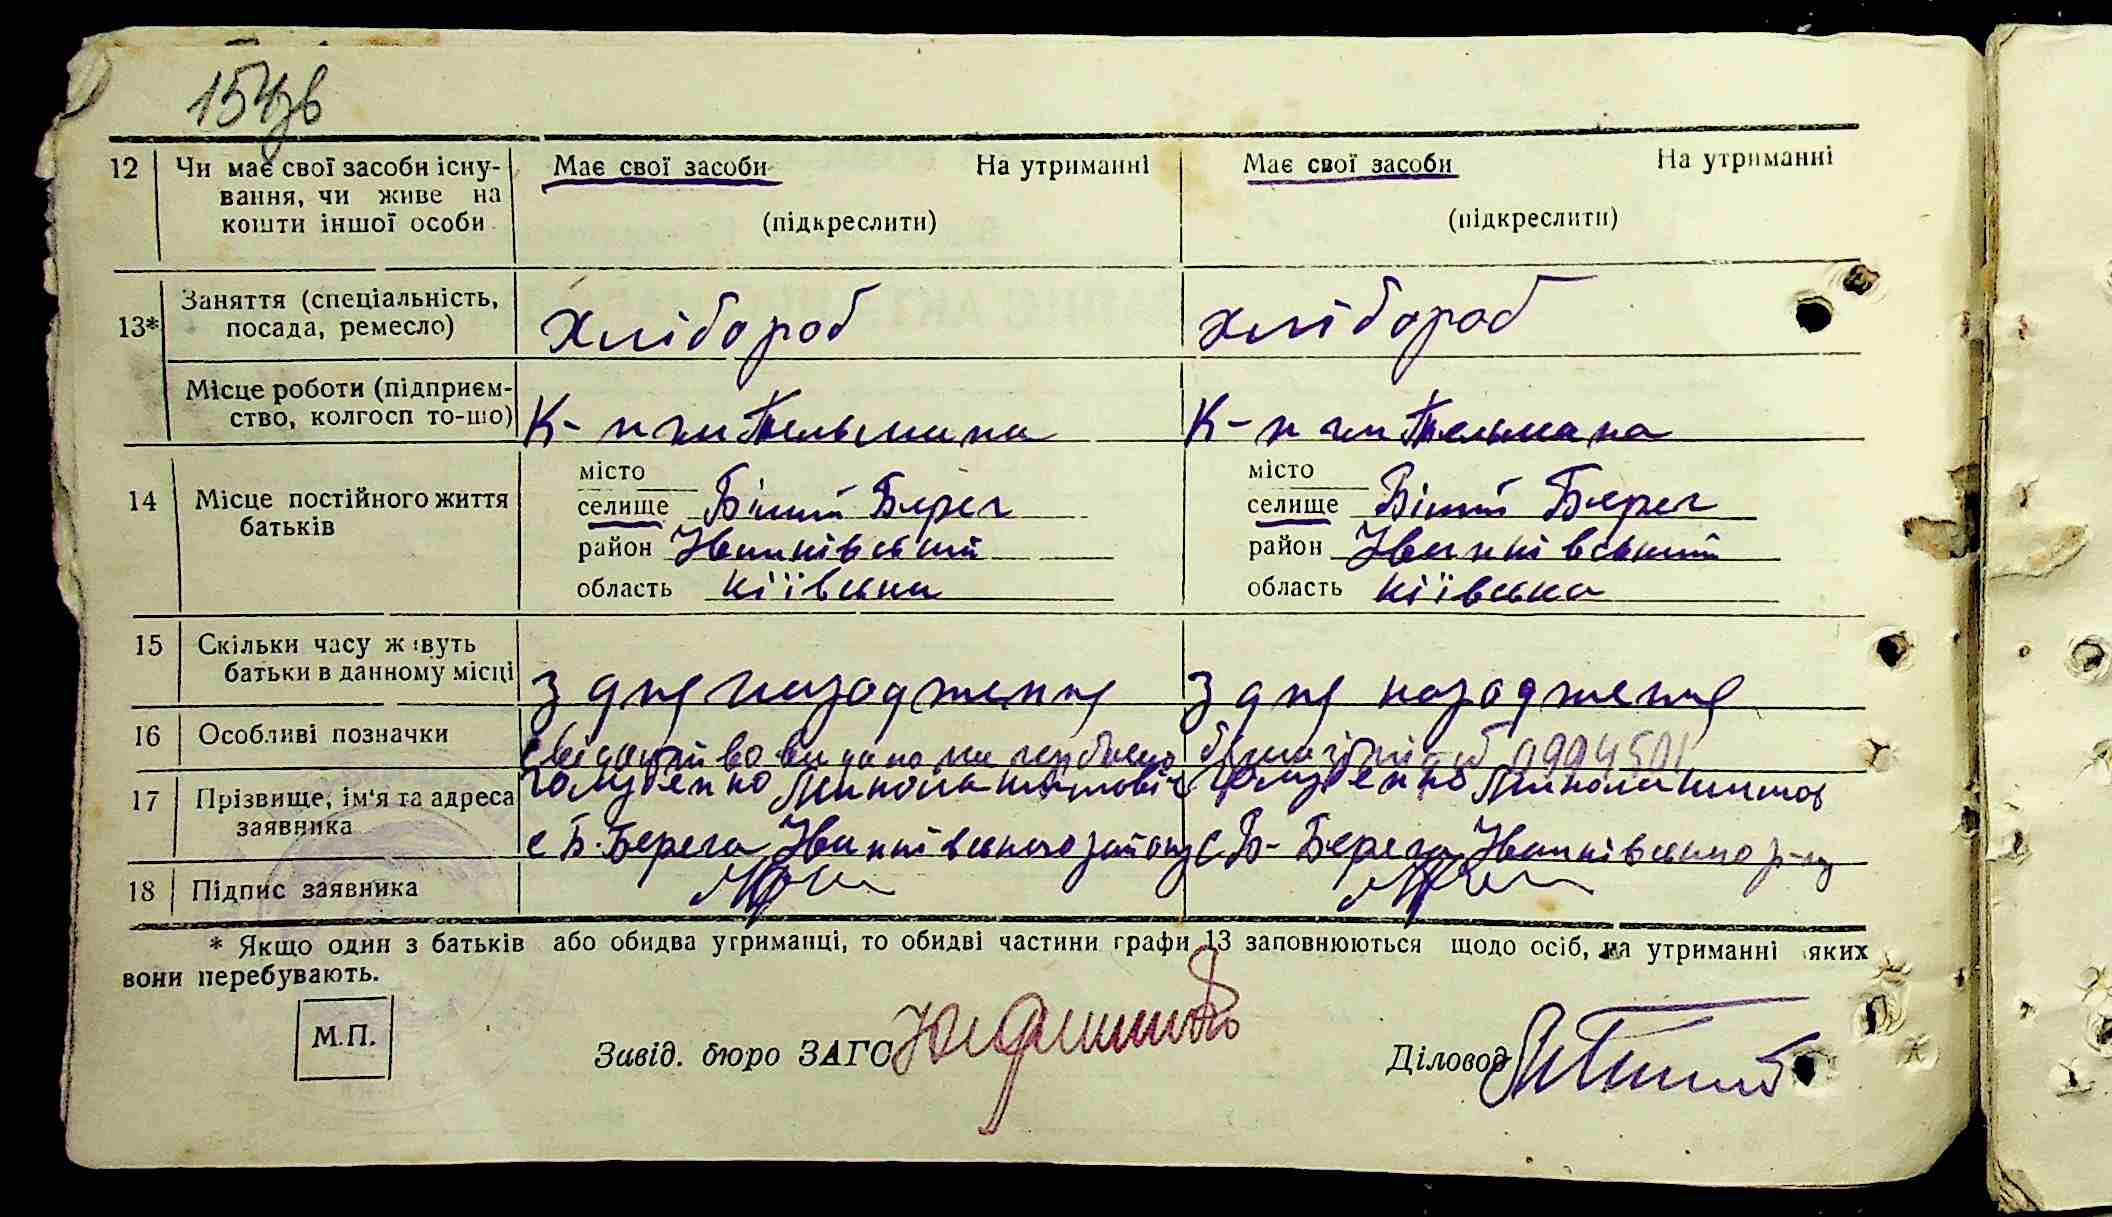 154зв
12 Чи має свої засоби існу- Має свої засоби На утриманні Має свої засоби На утриманні
вання, чи живе на
кошти іншої особи (підкреслити) (підкреслити)
13* Заняття (спеціальність,
посада, ремесло) хлібороб хлібороб
Місце роботи (підприєм-
ство, колгосп то-що) К-п ім Тельмана К-п ім Тельмана
14 Місце постійного життя
батьків
місто місто
селище Білий Берег селище Білий Берег
район Іванківський район Іванківський
область Кіївська область Кіївська
15 Скільки часу живуть
батьки в данному місці з дня народження з дня народження
16 Особливі позначки свідоцтво видано на гербовіо
17 Прізвище, ім'я та адреса
заявника
с Б. Берега Іванківського району с Б- Берега Іванківського р-ну
18 Підпис заявника
* Якщо один з батьків або обидва утриманці, то обидві частини графи 13 заповнюються щодо осіб, на утриманні яких
вони перебувають.
М.П.
Завід. бюро ЗАГС Діловод